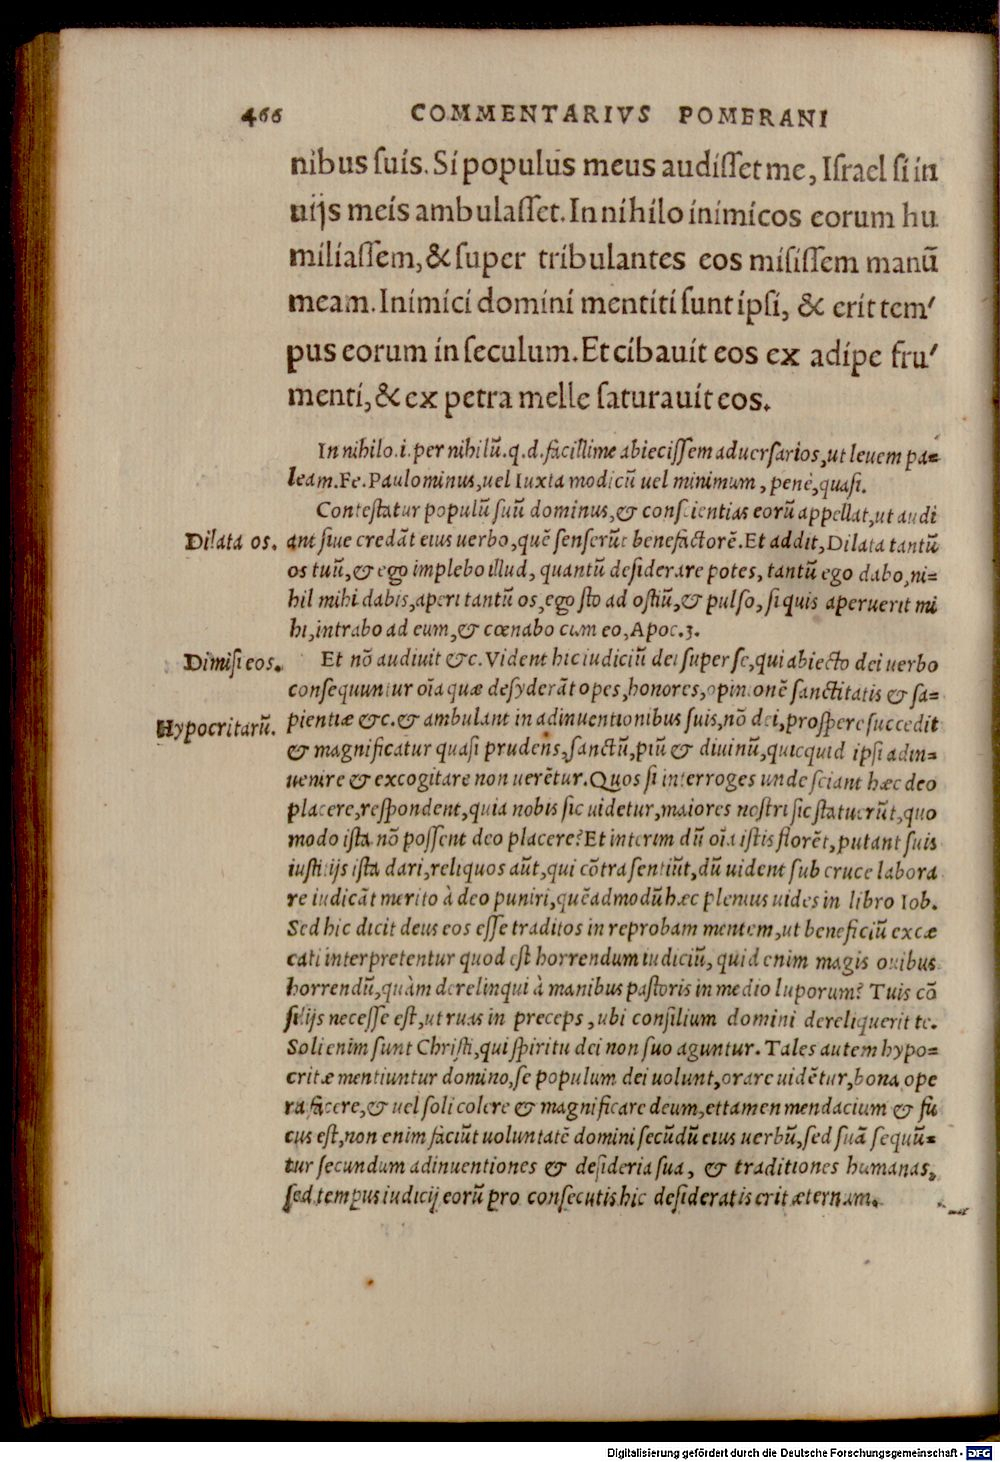 466 COMMENTARIVS POMERANI
nibus suis. Si populus meus audisset me, Israel si in
uijs meis ambulasset. In nihilo inimicos eorum hu
miliassem, & super tribulantes eos misissem manū
meam. Inimici domini mentiti sunt ipsi, & erit tem-
pus eorum in seculum. Et cibauit eos ex adipe fru-
menti, & ex petra melle saturauit eos.
In nihilo .i. per nihilū .q.d. facillime abiecissem aduersarios, ut leuem pa=
leam. Fe. Paulominus, uel Iuxta modicū uel minimum, penè, quasi.
Contestatur populū suū dominus, & conscientias eorū appellat, ut audi
Dilata os. ant siue credāt eius uerbo, quē senserūt benefactorē. Et addit, Dilata tantū
os tuū, & ego implebo illud, quantū desiderare potes, tantū ego dabo, ni=
hil mihi dabis, aperi tantū os, ego sto ad ostiū, & pulso, si quis aperuerit mi
hi, intrabo ad eum, & cœnabo cum eo, Apoc. 3.
Dimisi eos. Et nō audiuit &c. Vident hic iudiciū dei super se, qui abiecto dei uerbo
consequuntur oīa quæ desyderāt opes, honores, opinionē sanctitatis & sa=
Hypocritarū. pientiæ &c. & ambulant in adinuentionibus suis, nō dei, prospere succedit
& magnificatur quasi prudens, sanctū, piū & diuinū, quicquid ipsi adin=
uenire & excogitare non uerētur. Quos si interroges unde sciant hæc deo
placere, respondent, quia nobis sic uidetur, maiores nostri sic statuerūt, quo
modo ista nō possent deo placere? Et interim dū oīa istis florēt, putant suis
iustitijs ista dari, reliquos aūt, qui cōtra sentiūt, dū uident sub cruce labora
re iudicāt merito à deo puniri, quēadmodū hæc plenius uides in libro Iob.
Sed hic dicit deus eos esse traditos in reprobam mentem, ut beneficiū excæ
cati interpretentur quod est horrendum iudiciū, quid enim magis ouibus
horrendū, quàm derelinqui à manibus pastoris in medio luporum? Tuis cō
silijs necesse est, ut ruas in preceps, ubi consilium domini dereliquerit te.
Soli enim sunt Christi, qui spiritu dei non suo aguntur. Tales autem hypo=
critæ mentiuntur domino, se populum dei uolunt, orare uidētur, bona ope
ra facere, & uel soli colere & magnificare deum, et tamen mendacium & fu
cus est, non enim faciūt uoluntatē domini secūdū eius uerbū, sed suā sequū=
tur secundum adinuentiones & desideria sua, & traditiones humanas,
sed tempus iudicij eorū pro consecutis hic desideratis erit æternum.
Digitalisierung gefördert durch die Deutsche Forschungsgemeinschaft - DFG